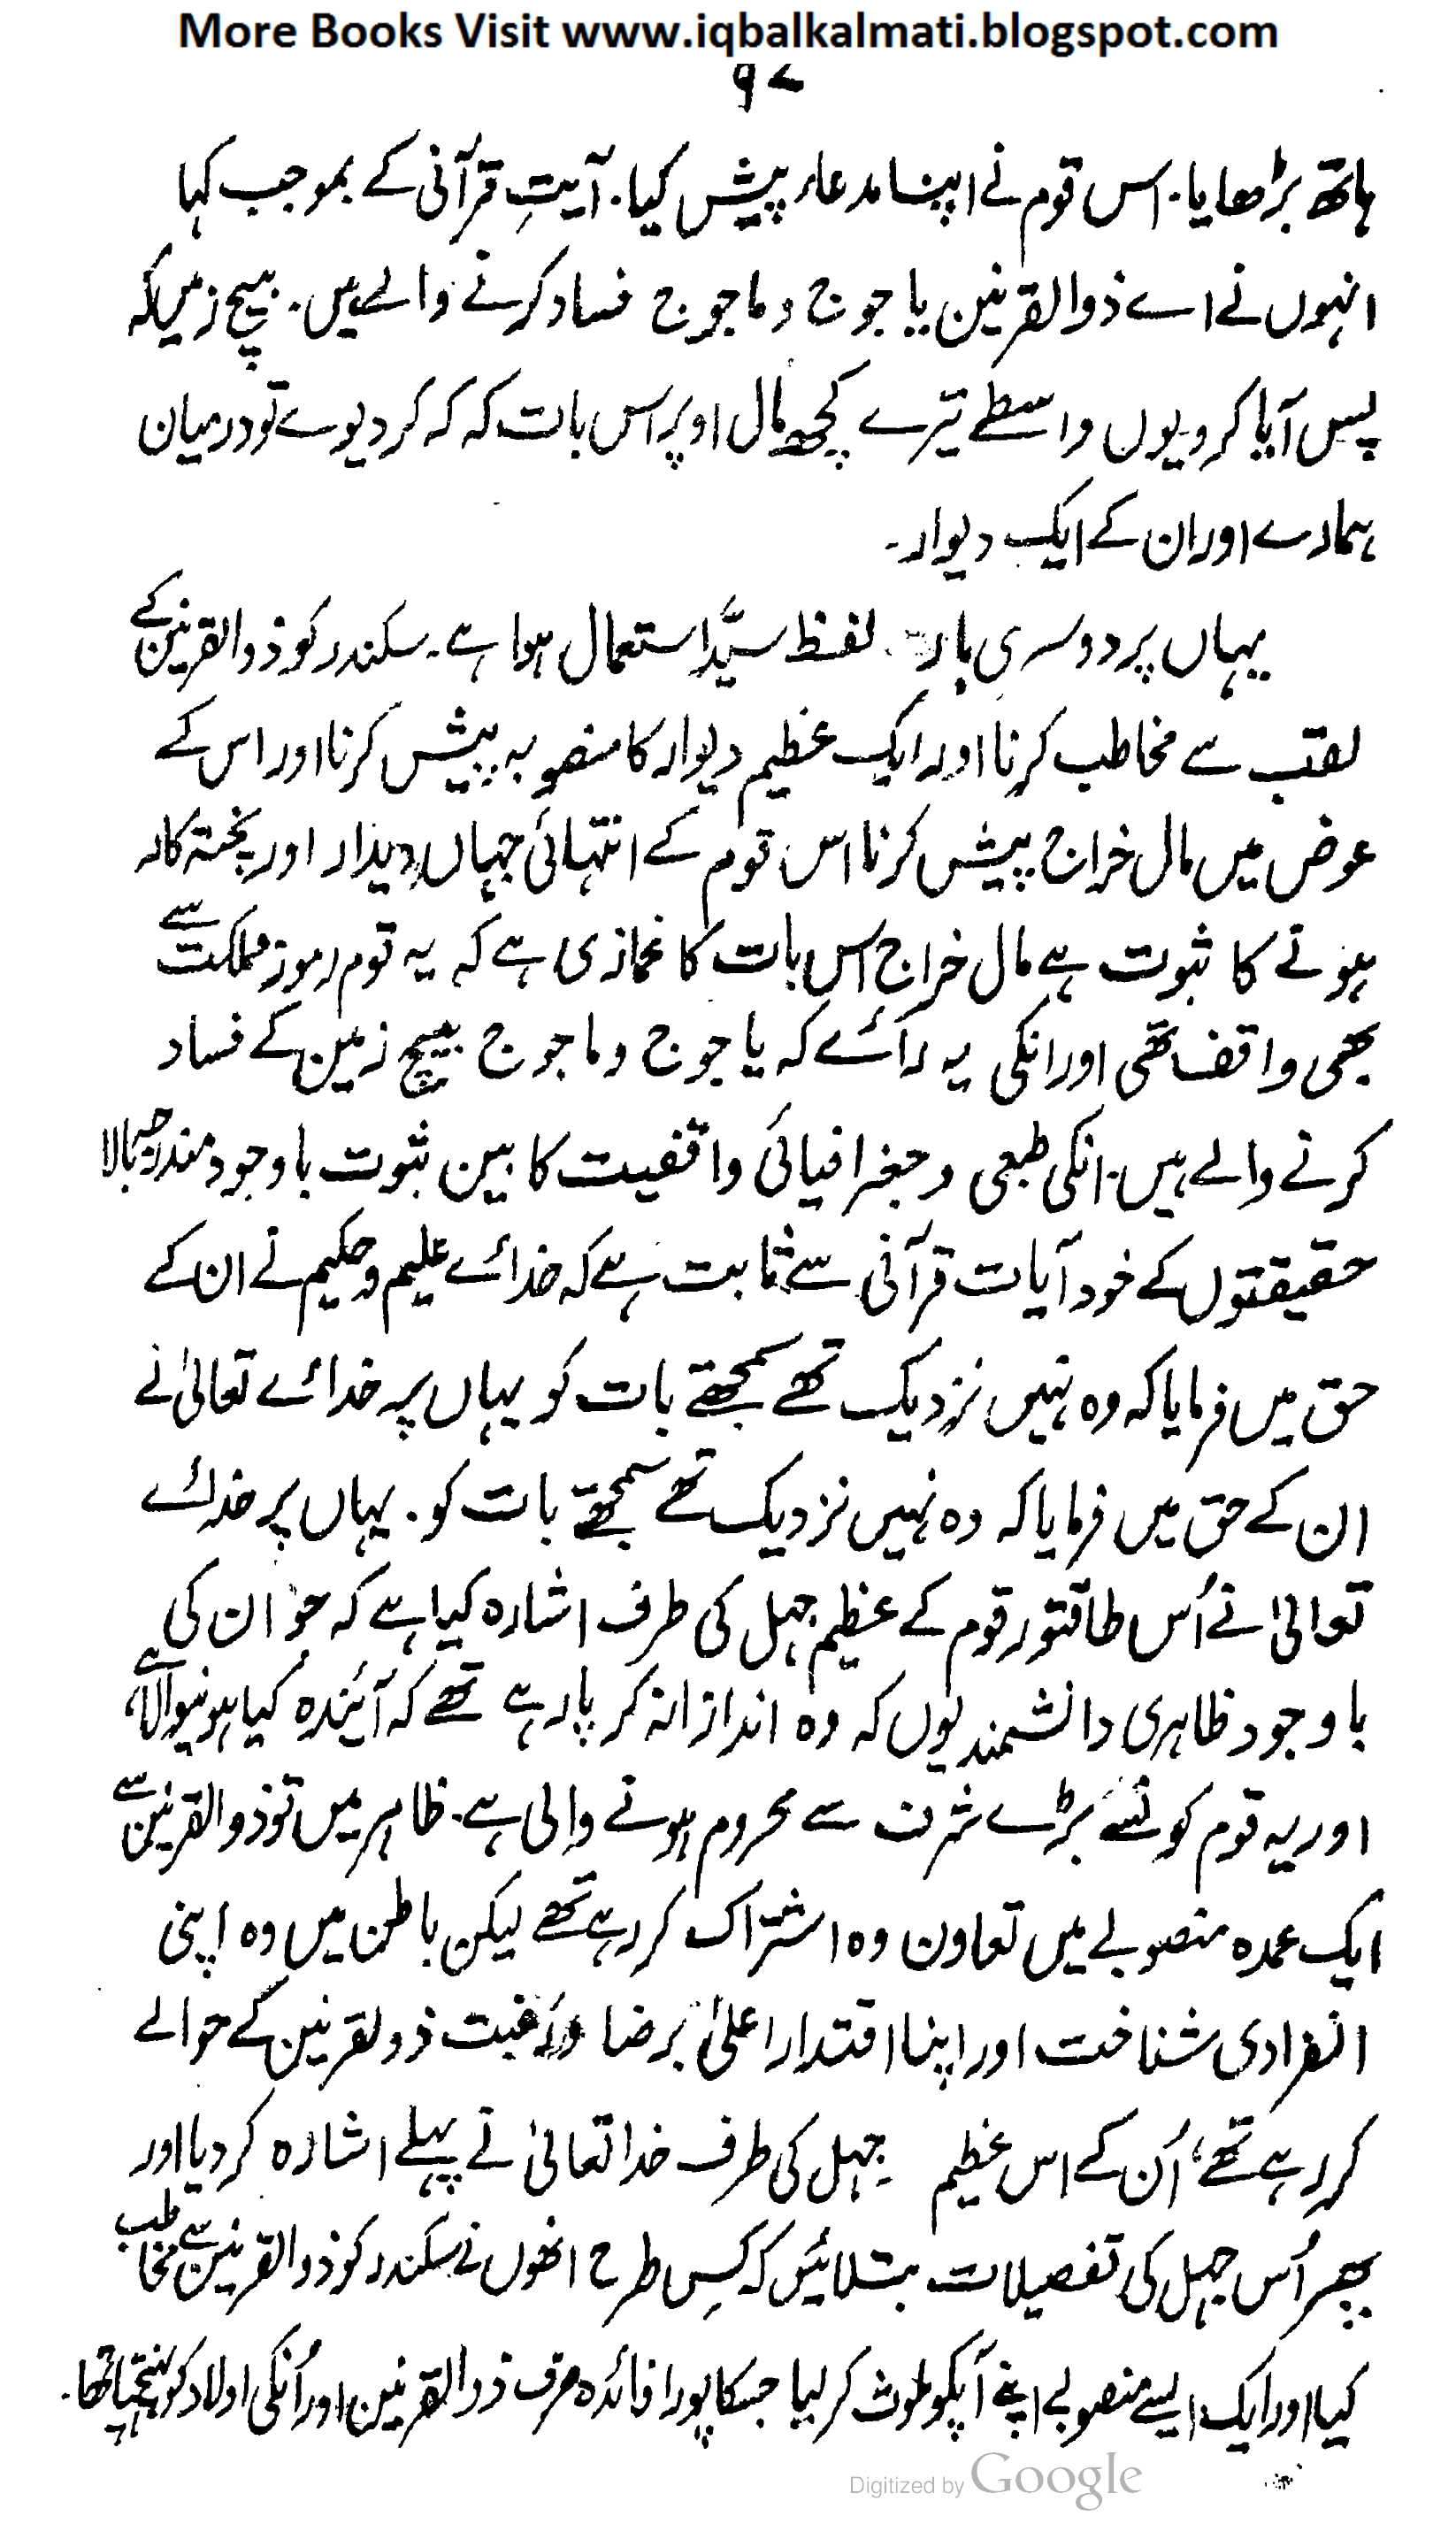 More Books Visit www.iqbalkalmati.blogspot.com
۹۷
ہاتھ بڑھایا۔ اس قوم نے اپنا مدعا پیش کیا۔ آیتِ قرآنی کے بموجب کہا
انہوں نے اے ذوالقرنین یا جوج و ماجوج فساد کرنے والے ہیں۔ بیچ زمیں کہ
پس آیا کر دیوں واسطے تیرے کچھ مال اوپر اس بات کہ کہ کر دیوے تو درمیان
ہمارے اور ان کے ایک دیوار۔
یہاں پر دوسری بار لفظ سدّاً استعمال ہوا ہے۔ سکندر کو ذوالقرنین کے
لقب سے مخاطب کرنا اور ایک عظیم دیوار کا منصوبہ پیش کرنا اور اس کے
عوض میں مال خراج پیش کرنا اس قوم کے انتہائی جہاں دیدار اور پختہ کار
ہونے کا ثبوت ہے مال خراج اس بات کا غمازی ہے کہ یہ قوم رموز مملکت سے
بھی واقف تھی اور انکی یہ رائے کہ یا جوج و ماجوج بیچ زمین کے فساد
کرنے والے ہیں۔ انکی طبعی و جغرافیائی واقفیت کا بین ثبوت باوجود مندرجہ بالا
حقیقتوں کے خود آیات قرآنی سے ثابت ہے کہ خدائے علیم و حکیم نے ان کے
حق میں فرمایا کہ وہ نہیں نزدیک تھے سمجھتے بات کو یہاں پر خدائے تعالیٰ نے
ان کے حق میں فرمایا کہ وہ نہیں نزدیک تھے سمجھتے بات کو۔ یہاں پر خدائے
تعالیٰ نے اُس طاقتور قوم کے عظیم جہل کی طرف اشارہ کیا ہے کہ جو ان کی
باوجود ظاہری دانشمندیوں کہ وہ اندازانہ کر پا رہے تھے کہ آئندہ کیا ہونیوالا ہے،
اور یہ قوم کونسے بڑے شرف سے محروم ہونے والی ہے۔ ظاہر میں تو ذوالقرنین سے
ایک عمدہ منصوبے میں تعاون وہ اشتراک کر رہے تھے لیکن باطن میں وہ اپنی
انفرادی شناخت اور اپنا اقتدار اعلیٰ برضا و رغبت ذولقرنین کے حوالے
کر رہے تھے، اُن کے اس عظیم جہل کی طرف خدا تعالیٰ نے پہلے اشارہ کر دیا اور
پھر اُس جہل کی تفصیلات بتلائیں کہ کس طرح انھوں نے سکندر کو ذوالقرنین سے مخاطب
کیا اور ایک ایسے منصوبے اپنے آپکو ملوث کر لیا جسکا پورا فائدہ صرف ذوالقرنین اور اُنکی اولاد کو پہنچتا تھا۔
Digitized by Google